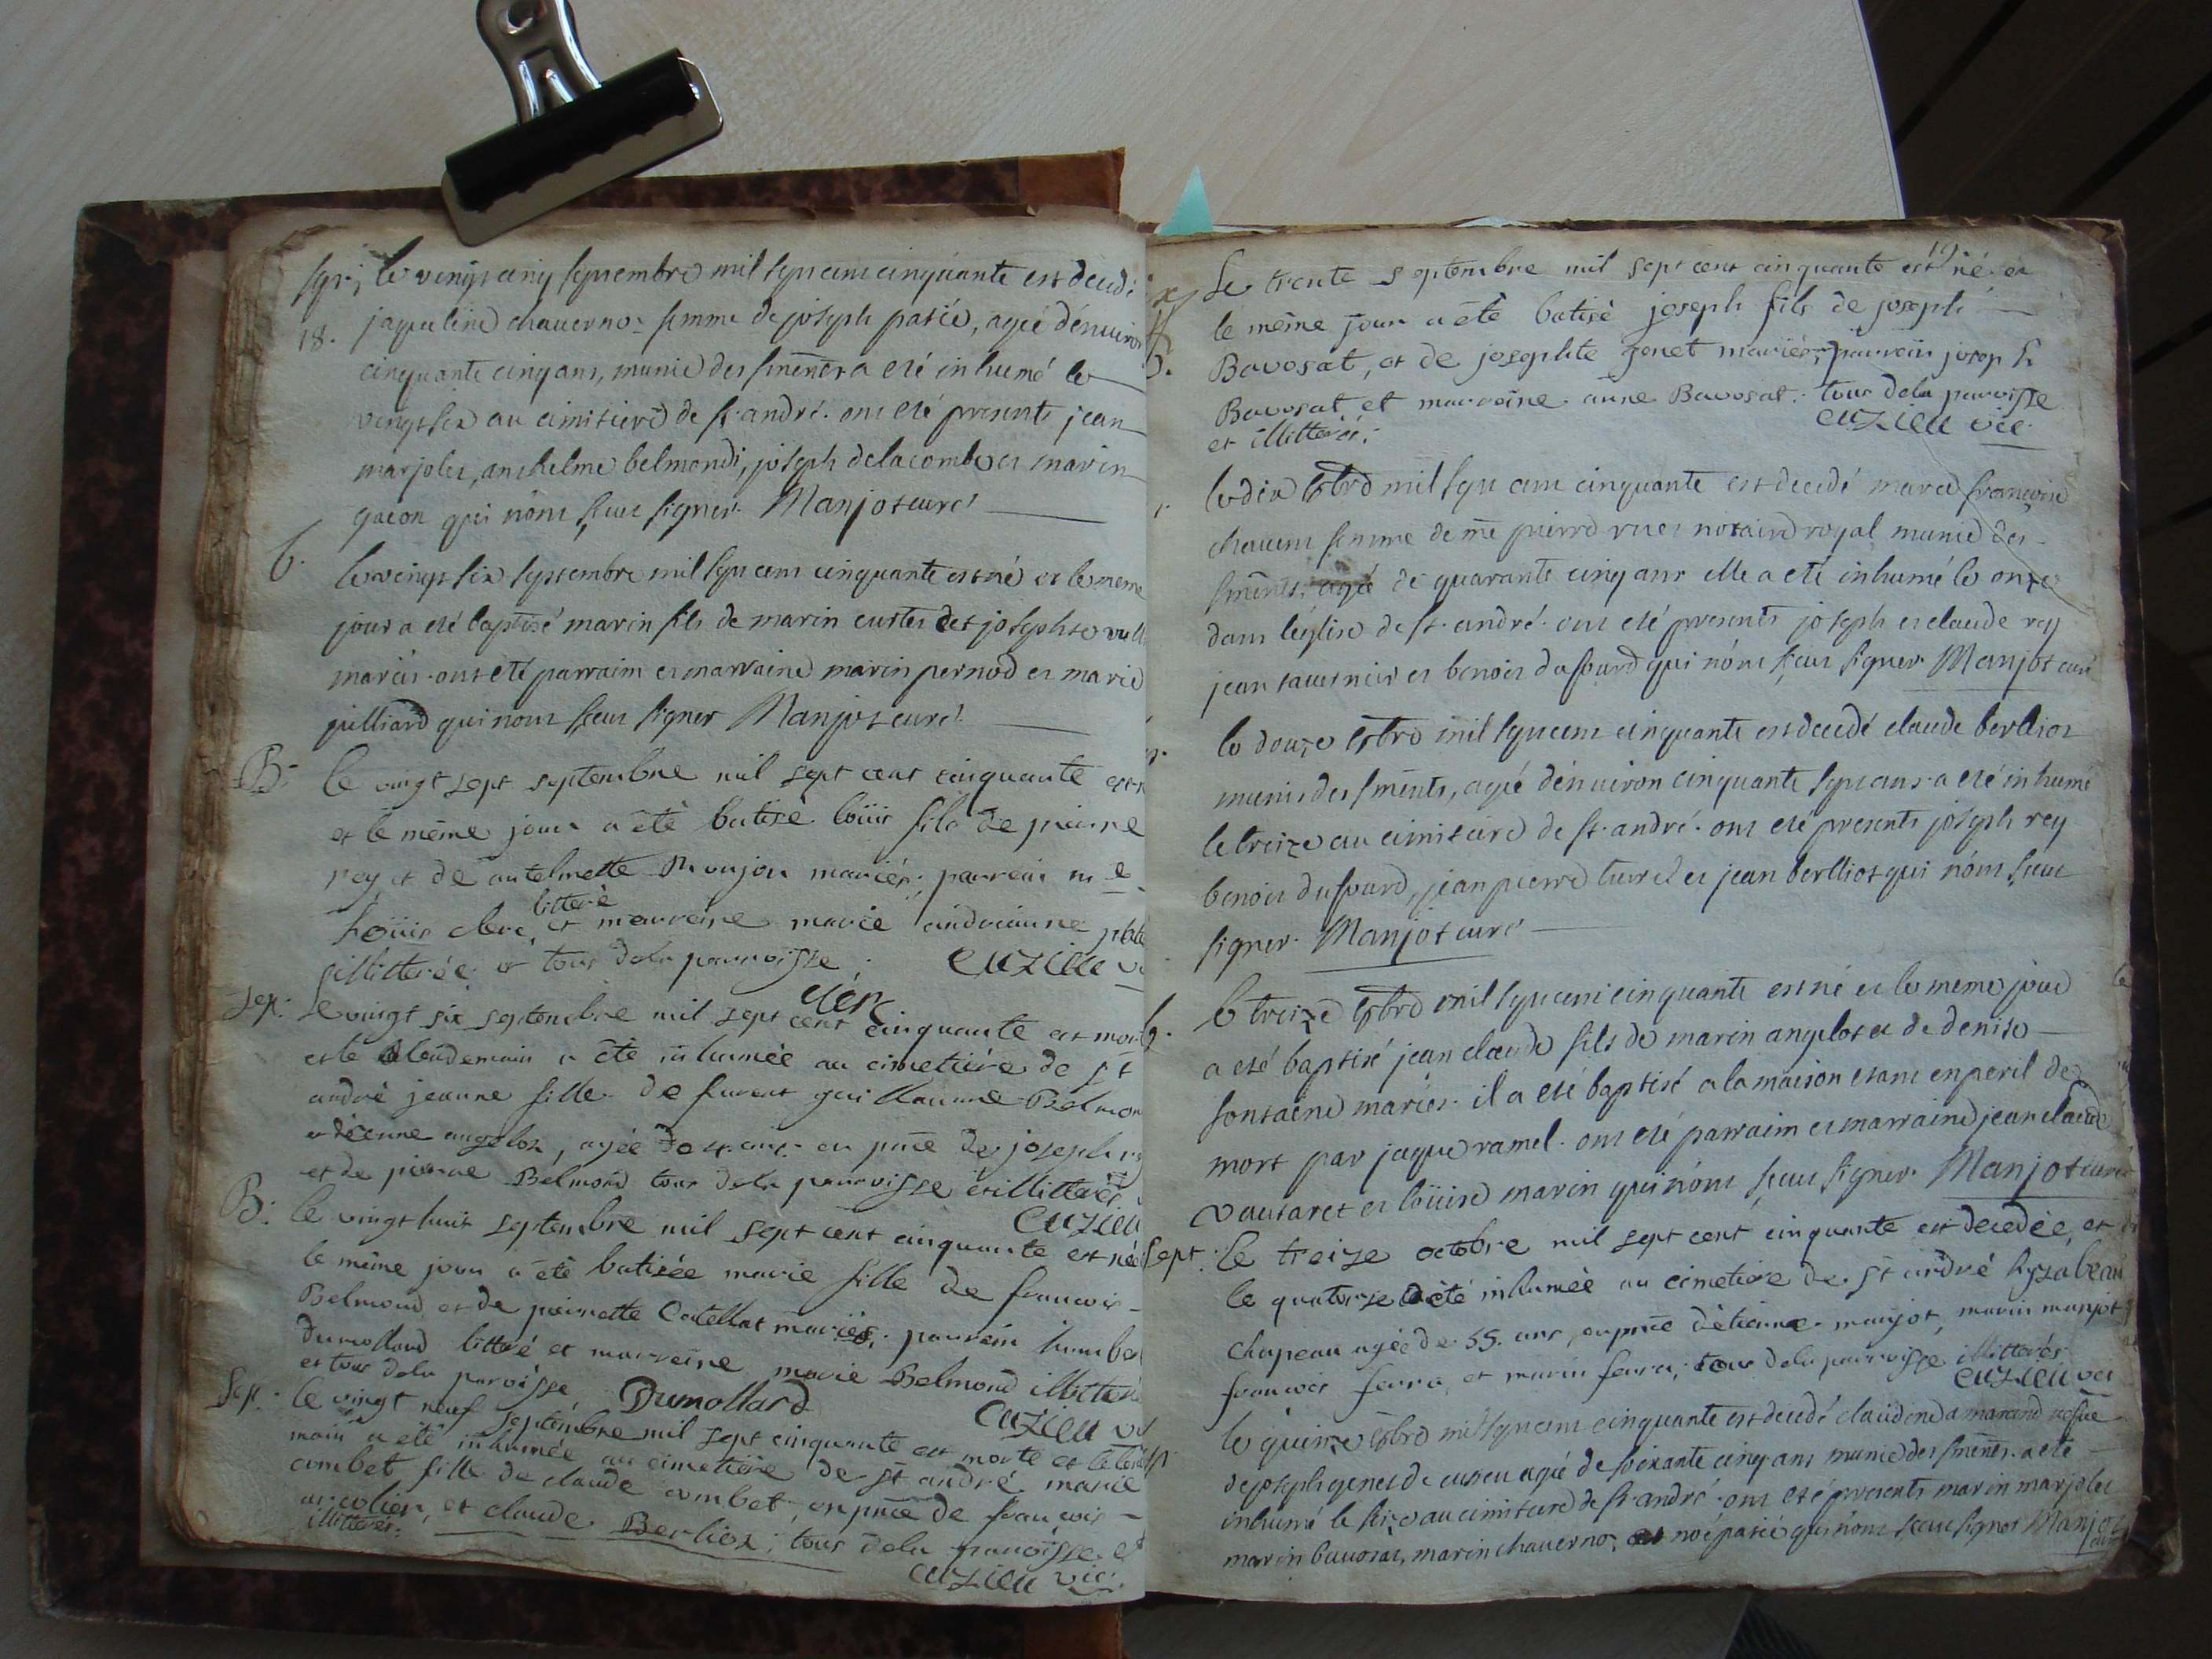 le vingt cinq septembre mil sept cent cinquante est decedé
18. jaqueline chauernoz femme de joseph patié, agée d'enuiron
cinquante cinq ans, munie des sments a eté inhumé le
vingt six au cimitiere de st. andré. ont eté presents jean
marjolet, anthelme belmond, joseph delacombe et marin
gacon qui n'ont sceu signer. Manjot curé
b. le vingt six septembre mil sept cent cinquante est né et le meme
jour a eté baptisé marin fils de marin curtet et josephte
mariés. ont eté parrain et marraine marin pernod et marie
juilliard qui n'ont sceu signer Manjot curé
B. le vingt sept septembre mil sept cent cinquante est
et le même jour a êtê batisè loüis fils de pierre
rey et de antelmette Monjou mariés; parrain me
litteré
Loüis clerc, et marreine marie andreanne
illitterée et tous dela parroisse. cuzieu
clerc
sep. Le vingt six septembre mil sept cent cinquante est
et le lendemain a êtê inhumée au cimetiére de st
andrè jeanne fille de furent guillaume Belmond
etienne angelot, agée de 4 ans en pnce de joseph
et de pierre Belmond tous dela parroisse et illitterés
cuzieu
B. le vingt huit septembre mil sept cent cinquante est née
le même jour a êtê batisée marie fille de francois
Belmond et de pierrette Catellat mariés; parrein humbert
dumollard litteré et marreine marie Belmond illiterée
et tous dela parroisse Dumollard cuzieu
Sep. le vingt neuf septembre mil sept cinquante est morte et le lende
main a êtê inhumée au cimetiére de st andré marie
combet fille de claude combet, en pnce de francois
et claude Berlioz; tous dela parroisse et
illitterés. cuzieu vic.
19
Le trente septembre mil sept cent cinquante est né et
le même jour a êtê batisè joseph fils de joseph
Bavosat, et de josephte genet mariés; parrein joseph
Bavosat et marreine anne Bavosat. tous dela parroisse
et illitterés. cuzieu vic.
le dix 8bre mil sept cent cinquante est decedé marie francoise
femme de me pierre notaire royal munie des
sments, agé de quarante cinq ans elle a eté inhumé le onze
dans l'eglise de st. andré. ont eté presents joseph et claude rey
jean tavernier et benoit dufourd qui n'ont sceu signer. Manjot curé
le douze 8bre mil sept cent cinquante est decedé claude berlioz
munis des sments, agé d'enuiron cinquante sept ans. a eté inhumé
le treize au cimitiere de st. andré. ont eté presents joseph rey
benoit dufourd, jean pierre turel et jean berlliot qui n'ont sceu
signer. Manjot curé
b. le treize 8bre mil sept cent cinquante est né et le meme jour
a eté baptisé jean claude fils de marin angelot et de denise
fontaine mariés. il a eté baptisé a la maison etant en peril de
mort par jaque ramel. ont eté parrain et marraine jean claude
vautaret et loüise marin qui n'ont sceu signer. Manjot curé
Sept. le treize octobre mil sept cent cinquante est decedée, et
le quatorze a êtê inhumée au cimetiere de st andré Lyzabeau
chapeau agée de 55. ans, en pnce d'etienne manjot, marin manjot
francois ferra, et marin ferra, tous dela parroisse illitterés.
cuzieu vic
le quinze 8bre mil sept cent cinquante est decedé claudine vefue
de joseph genet de cuzieu agé de soixante cinq ans munie des sments. a eté
inhumé le seize au cimitiere de st. andré. ont eté presents marin marjolet
marin bauosat, marin chauernoz et noé patié qui n'ont sceu signer Manjot
curé